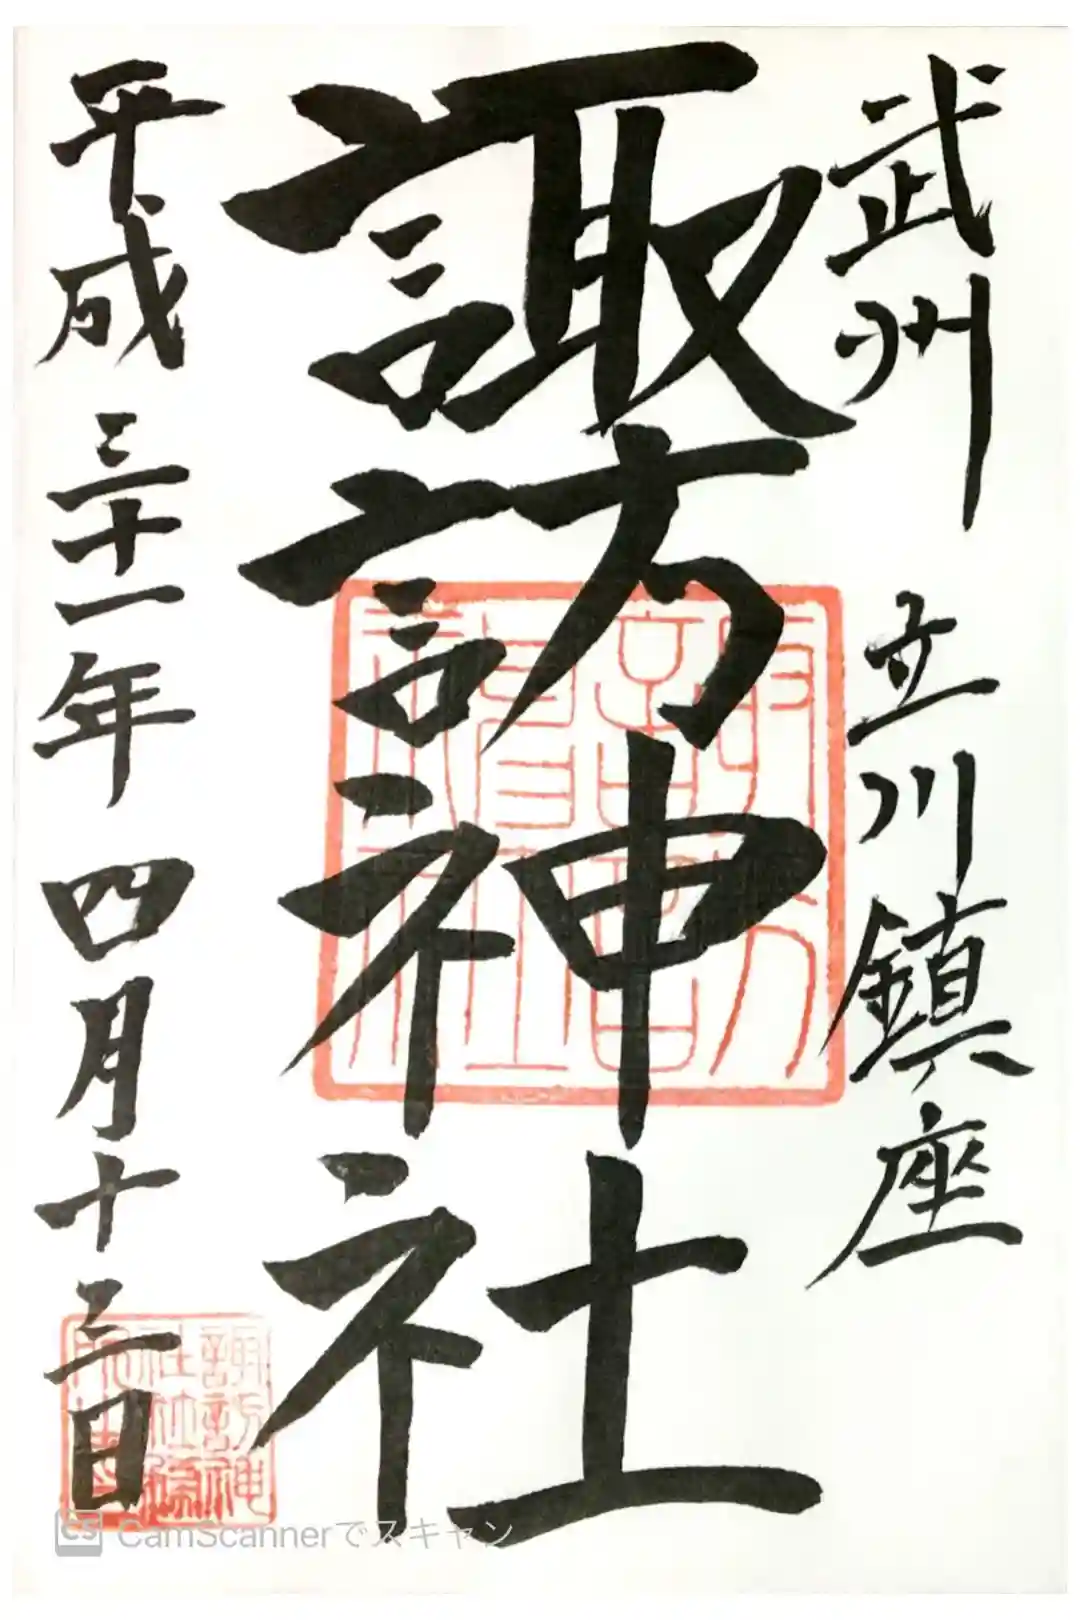 武州 立川鎮座
諏訪神社
平成三十一年 四月十三日
諏訪神社
CS CamScannerでスキャン